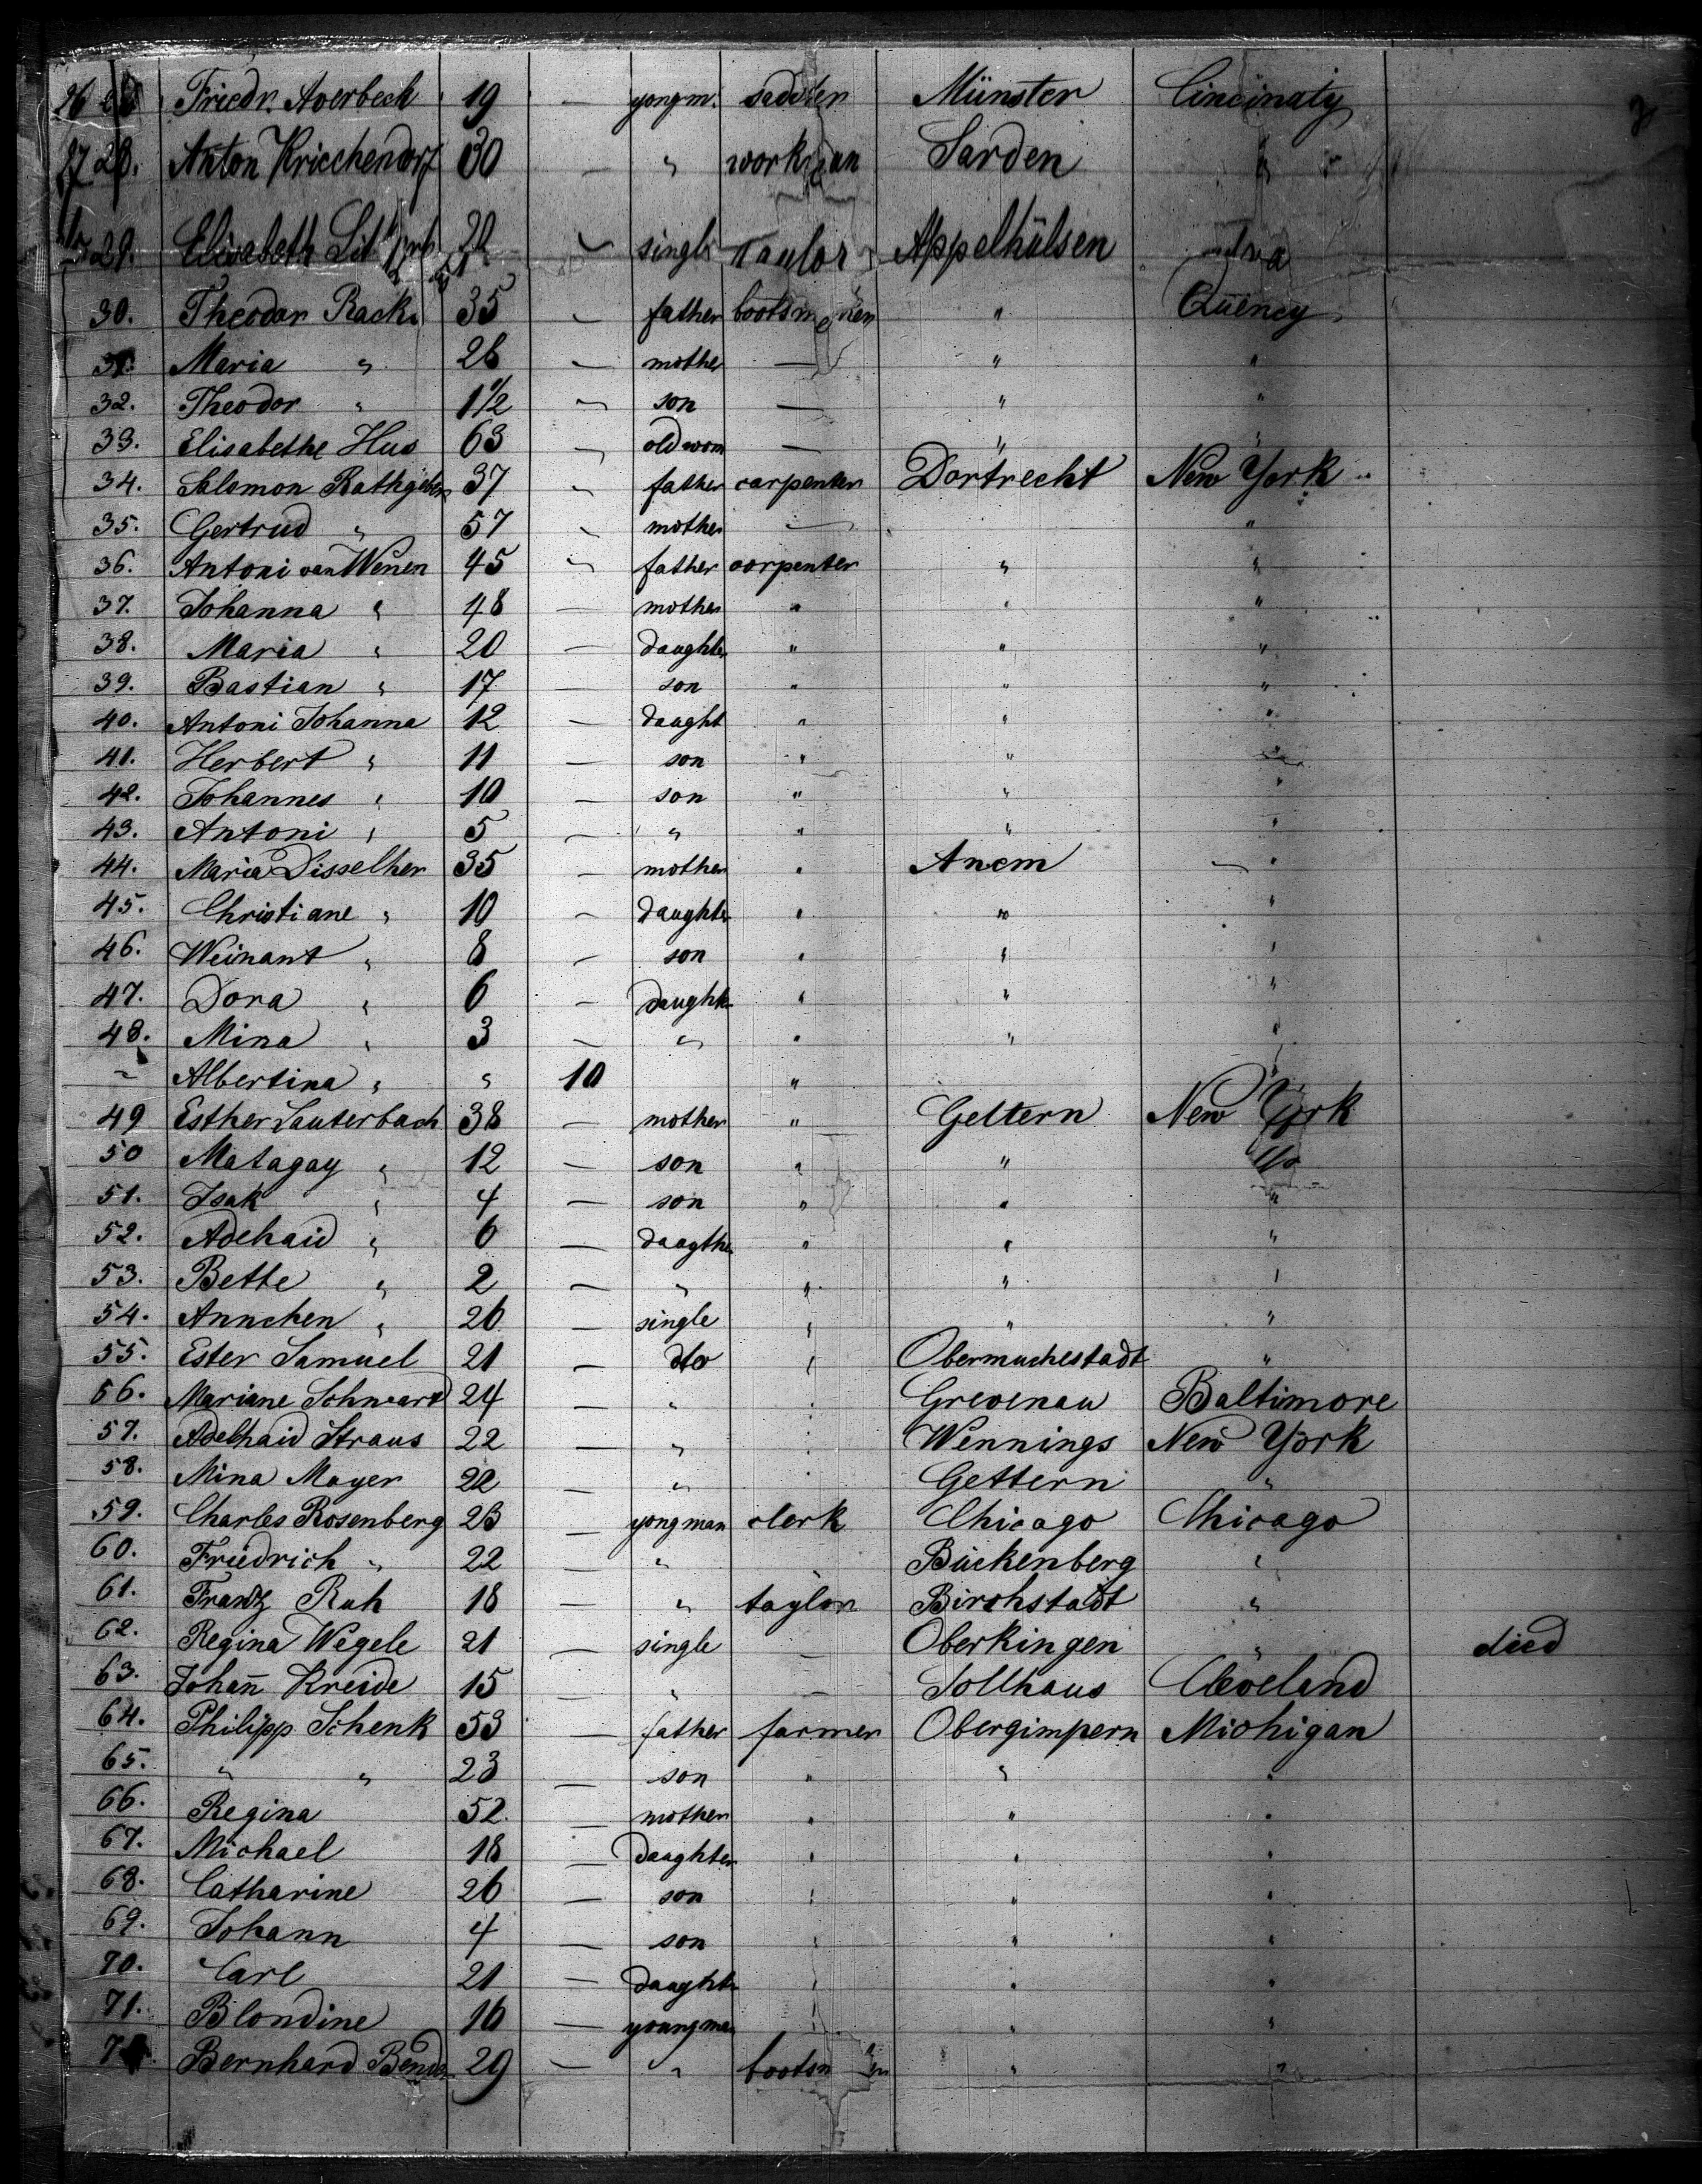 26 Friedr. Averbeck 19 — yong m. saddler Münster Cincinaty
27 28. Anton Kriechendorf 30 — " workman Sarden "
29. Elisabeth — single Taylor Appelhülsen
30. Theodor Rack 35 — father bootsmaker " Quency
31. Maria " 26 — mother — " "
32. Theodor " 1 1/2 — son — " "
33. Elisabethe Hus 63 — old wom — " "
34. Salomon Rathgeber 37 — father carpenter Dortrecht New York
35. Gertrud " 57 — mother — "
36. Antoni van Wenen 45 — father carpenter " "
37. Johanna " 48 — mother " " "
38. Maria " 20 — daughter " " "
39. Bastian " 17 — son " " "
40. Antoni Johanna 12 — daught " " "
41. Herbert " 11 — son " " "
42. Johannes " 10 — son " " "
43. Antoni " 5 — " " " "
44. Maria Disselher 35 — mother " Anem "
45. Christiane " 10 — daughter " " "
46. Weinant " 8 — son " " "
47. Dora " 6 — daughter " " "
48. Mina " 3 — " " " "
— Albertina " " 10 "
49 Esther Lauterbach 38 — mother " Geltern New York
50 Matagay " 12 — son " " do
51. Isak " 4 — son " " "
52. Adehaid " 6 — daugther " " "
53. Bette " 2 — " " " "
54. Annchen " 26 — single " " "
55. Ester Samuel 21 — dto " Obermuchestadt "
56. Mariane Schward 24 — " " Grevenau Baltimore
57. Adelhaid Straus 22 — " " Wennings New York
58. Mina Mayer 22 — " " Gettern "
59. Charles Rosenberg 23 — yong man clerk Chicago Chicago
60. Friedrich " 22 — " " Bückenberg "
61. Frantz Ruh 18 — " taylor Birchstadt "
62. Regina Wegele 21 — single — Oberkingen " died
63. Johan̄ Kreide 15 — " — Sollhaus Cleveland
64. Philipp Schenk 53 — father farmer Obergimpern Michigan
65. " " 23 — son " " "
66. Regina 52. — mother " " "
67. Michael 18 — Daughter " " "
68. Catharine 26 — son " " "
69. Johann 4 — son " " "
70. Carl 21 — daughte " " "
71. Blondine 16 — young man " " "
Bernhard Bender 29 — " " "